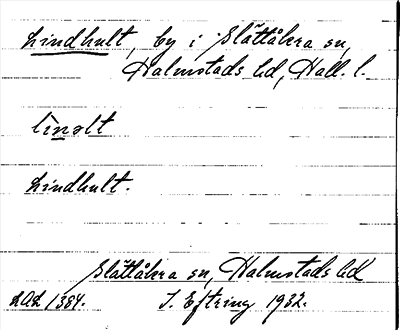 Lindhult, by i Slättåkra sn,
Halmstads hd, Hall. l.
lìnəlt
Lindhult.
Slättåkra sn, Halmstads hd
LAL 1384. I. Eftring 1932.